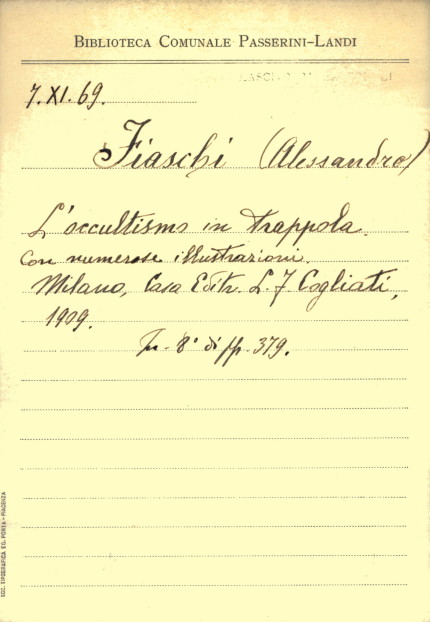 BIBLIOTECA COMUNALE PASSERINI-LANDI
7.XI.69.
Fiaschi (Alessandro)
L'occultismo in trappola.
Con numerose illustrazioni.
Milano, Casa Editr. L. F. Cogliati,
1909.
In-8° di pp. 379.
SOC. TIPOGRAFICA ED. PORTA - PIACENZA